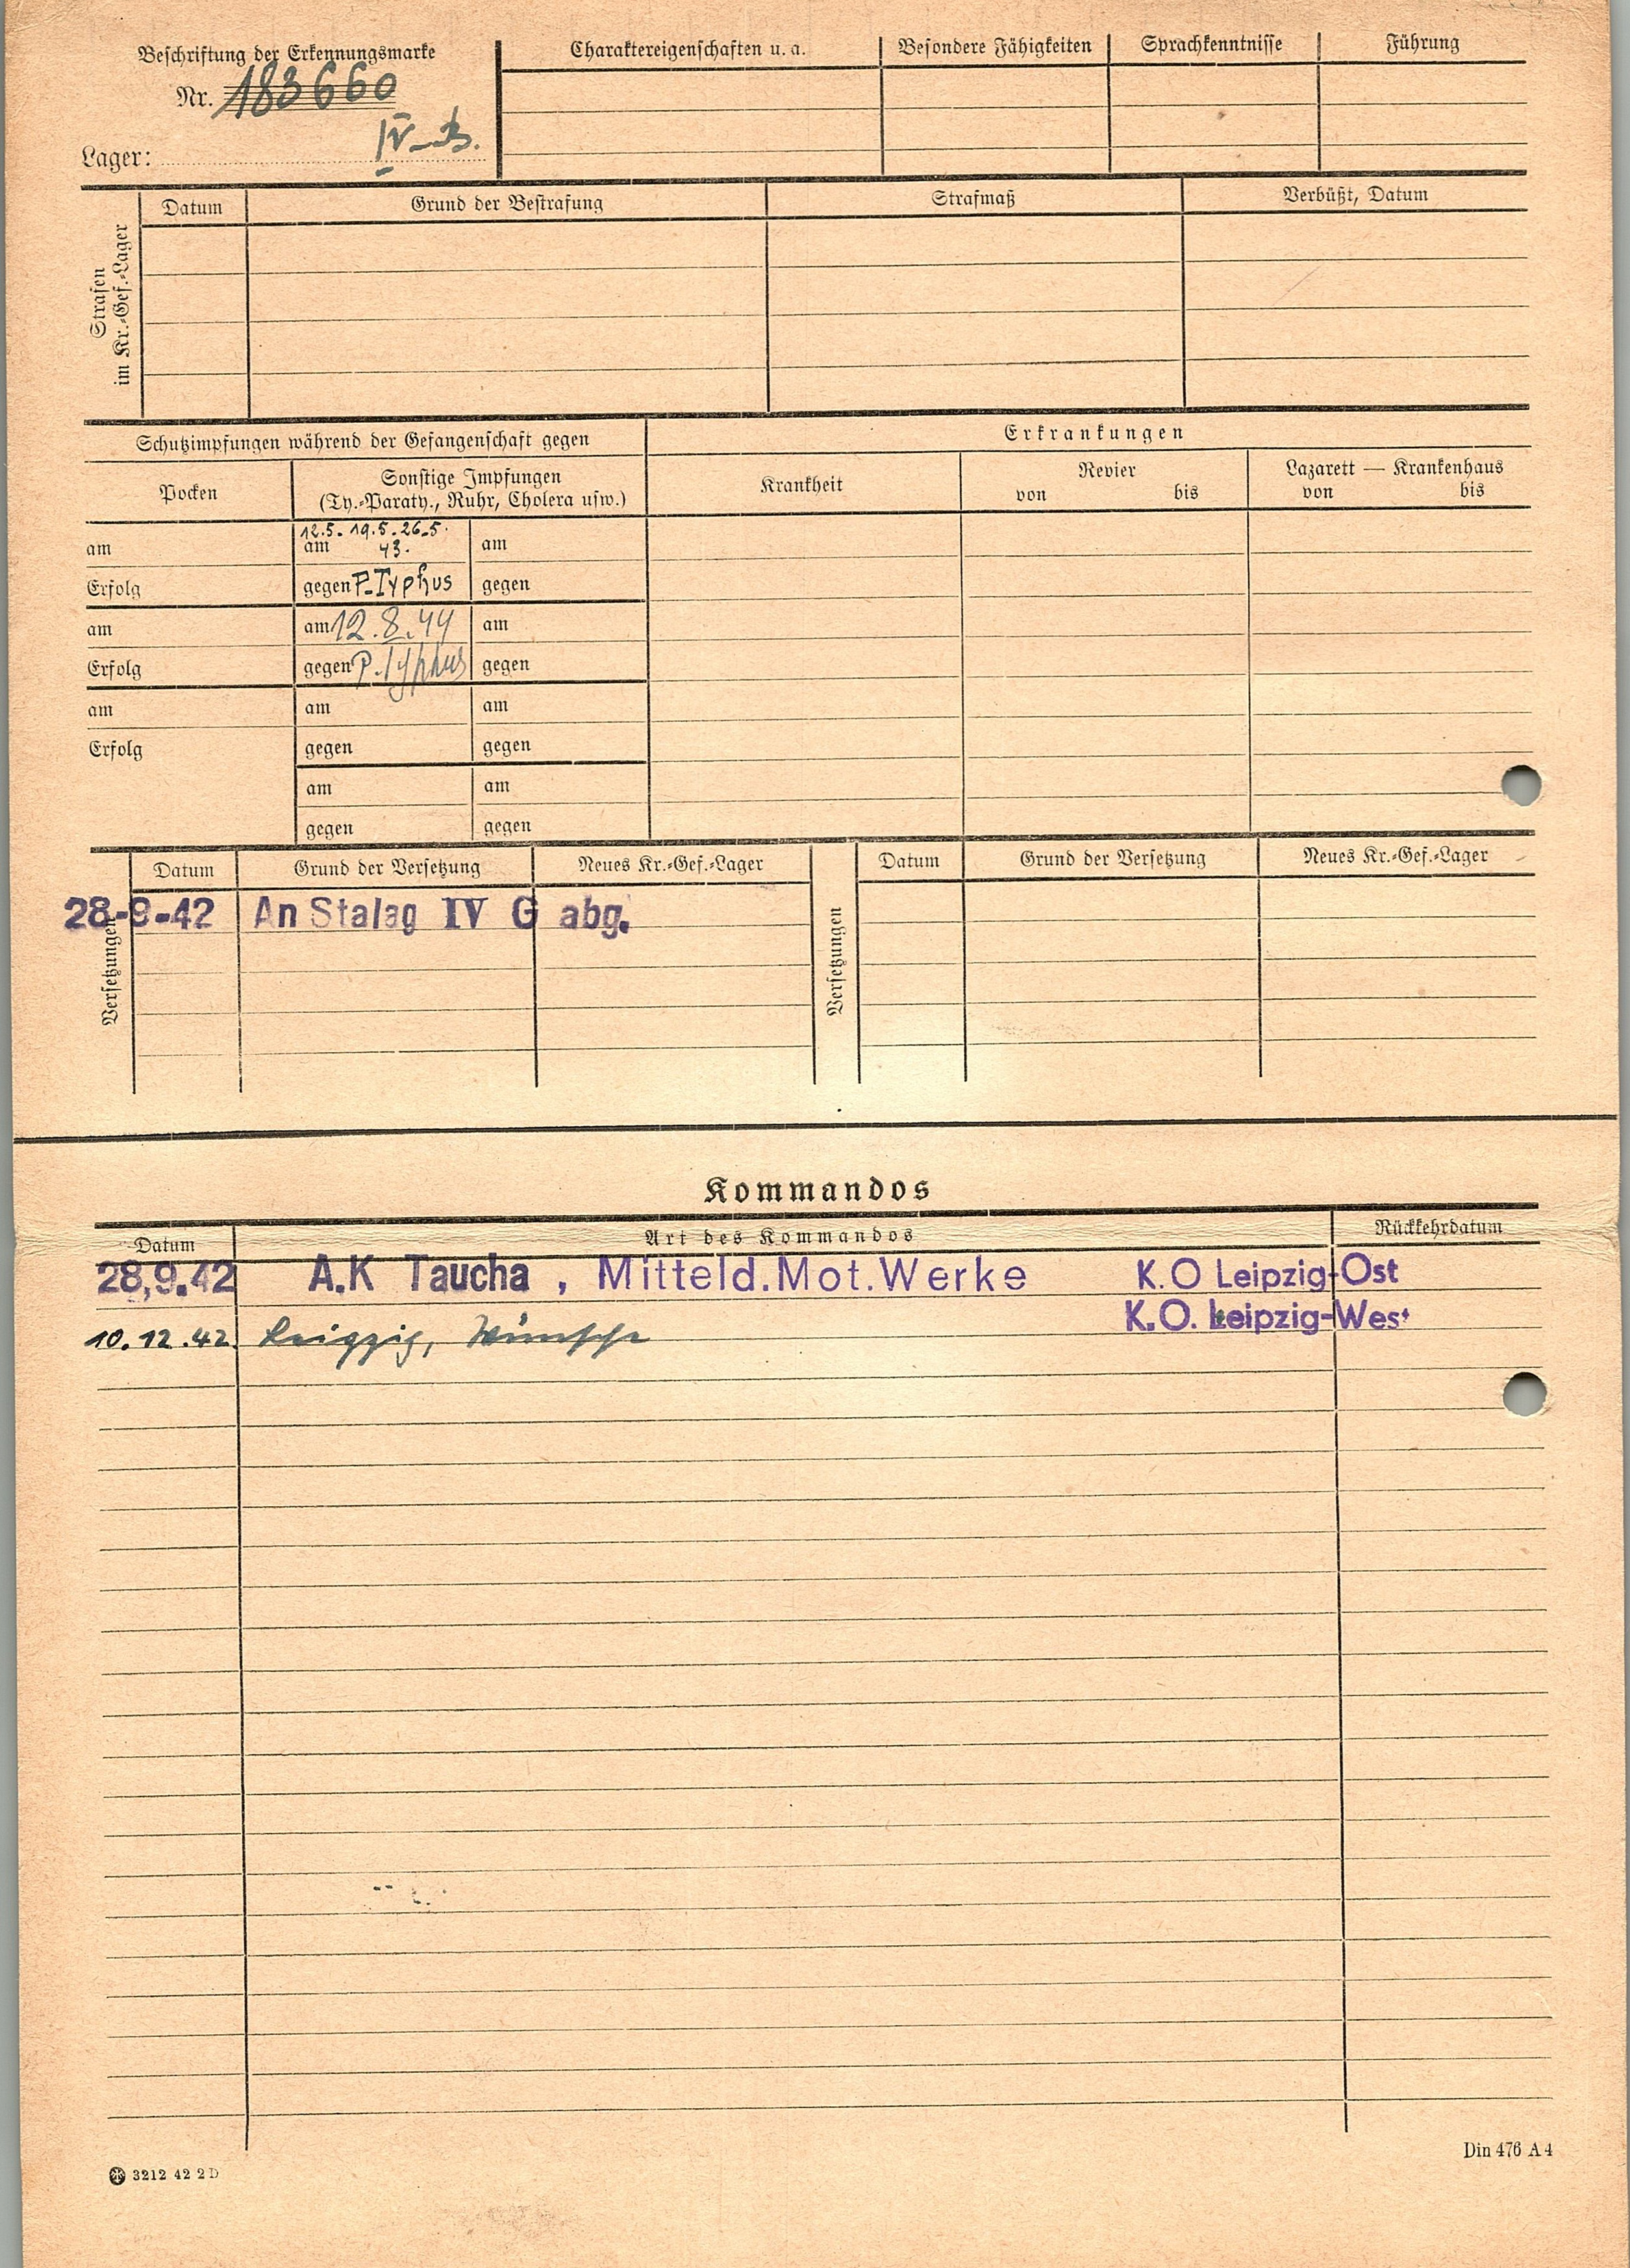 Beschriftung der Erkennungsmarke
Nr. 183660
Lager: IV-B.
Charaktereigenschaften u. a. Besondere Fähigkeiten Sprachkenntnisse Führung
Strafen
im Kr.-Gef.-Lager
Datum Grund der Bestrafung Strafmaß Verbüßt, Datum
Schutzimpfungen während der Gefangenschaft gegen
Erkrankungen
Pocken
Sonstige Impfungen
(Ty.-Paraty., Ruhr, Cholera usw.)
Krankheit
Revier
von bis
Lazarett — Krankenhaus
von bis
12.5. 19.5. 26.5.
am am 43. am
Erfolg gegen P-Typhus gegen
am am 12.8.44 am
Erfolg gegen P. Typhus gegen
am am am
Erfolg gegen gegen
am am
gegen gegen
Versetzungen
Datum Grund der Versetzung Neues Kr.-Gef.-Lager
28-9-42 An Stalag IV G abg.
Versetzungen
Datum Grund der Versetzung Neues Kr.-Gef.-Lager
Kommandos
Datum Art des Kommandos Rückkehrdatum
28.9.42 A.K Taucha , Mitteld.Mot.Werke K.O Leipzig-Ost
K.O. Leipzig-West
10.12.42. Leipzig, Wünsche
3212 42 2 D
Din 476 A 4